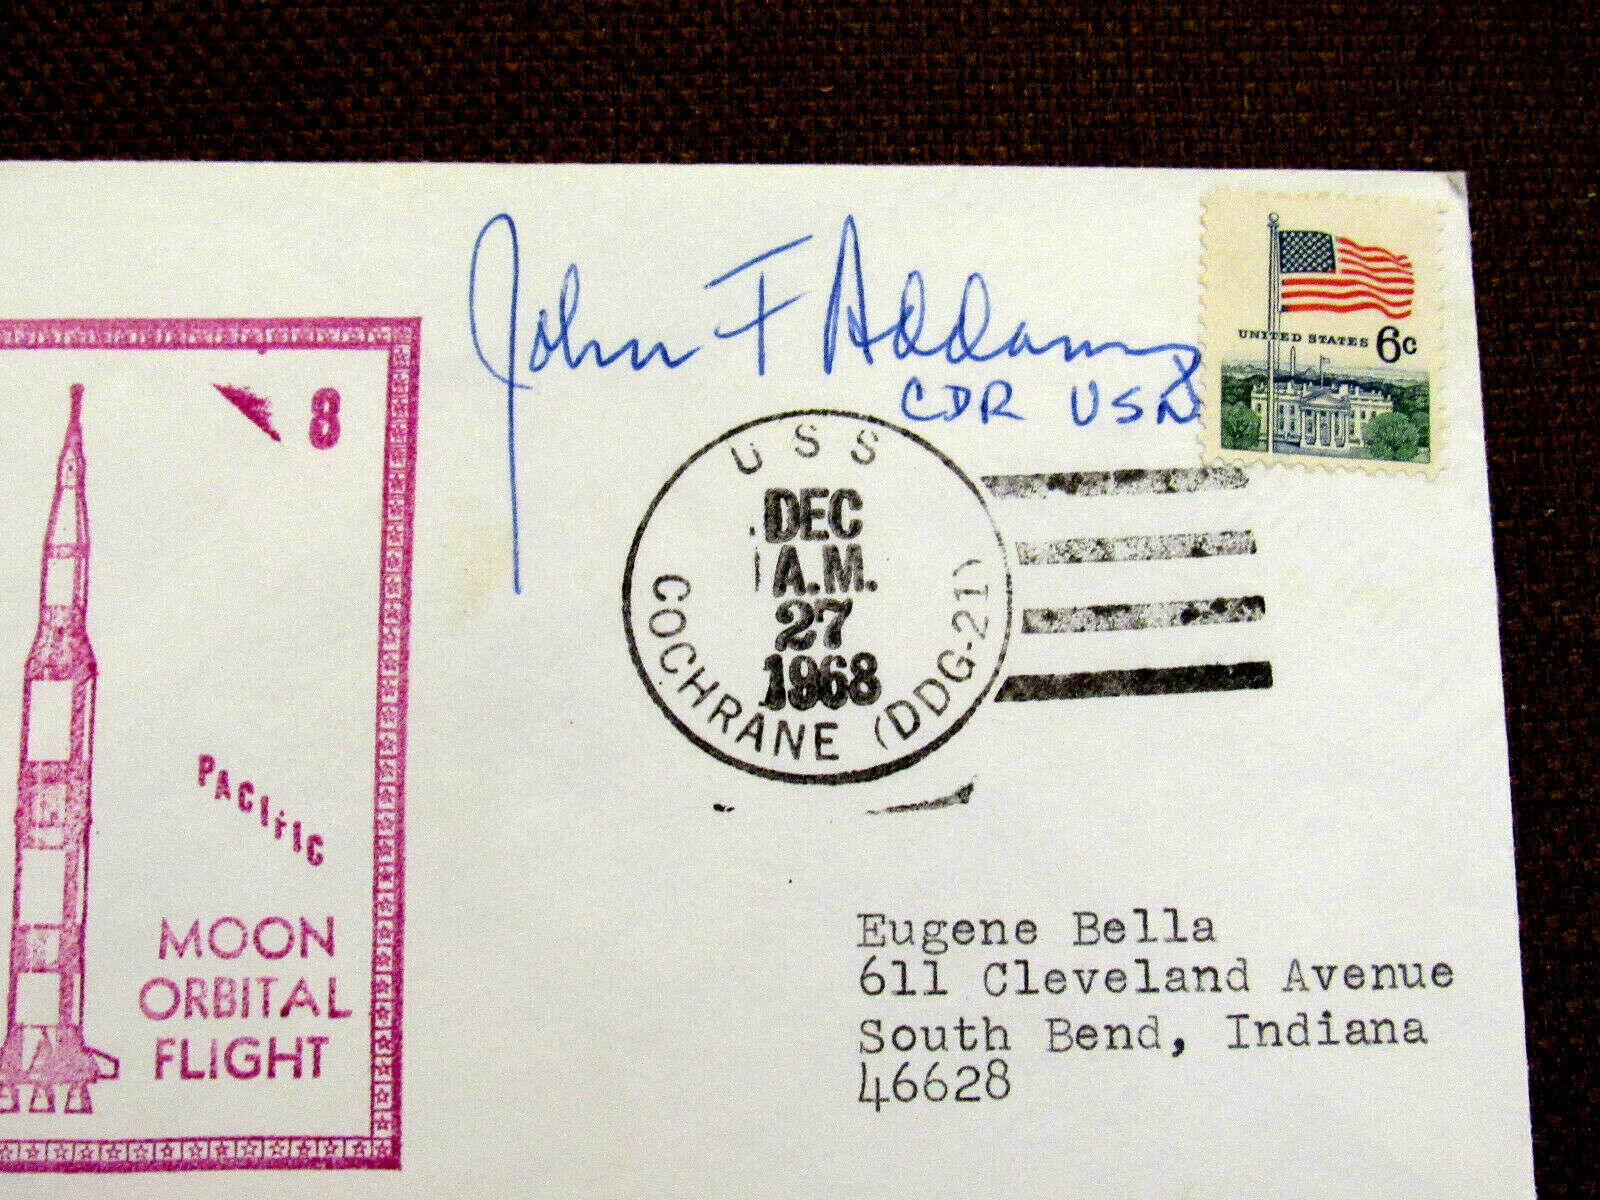 John F Addams
CDR USN
UNITED STATES 6c
8
USS
COCHRANE (DDG-21)
DEC
A.M.
27
1968
PACIFIC
MOON
ORBITAL
FLIGHT
Eugene Bella
611 Cleveland Avenue
South Bend, Indiana
46628